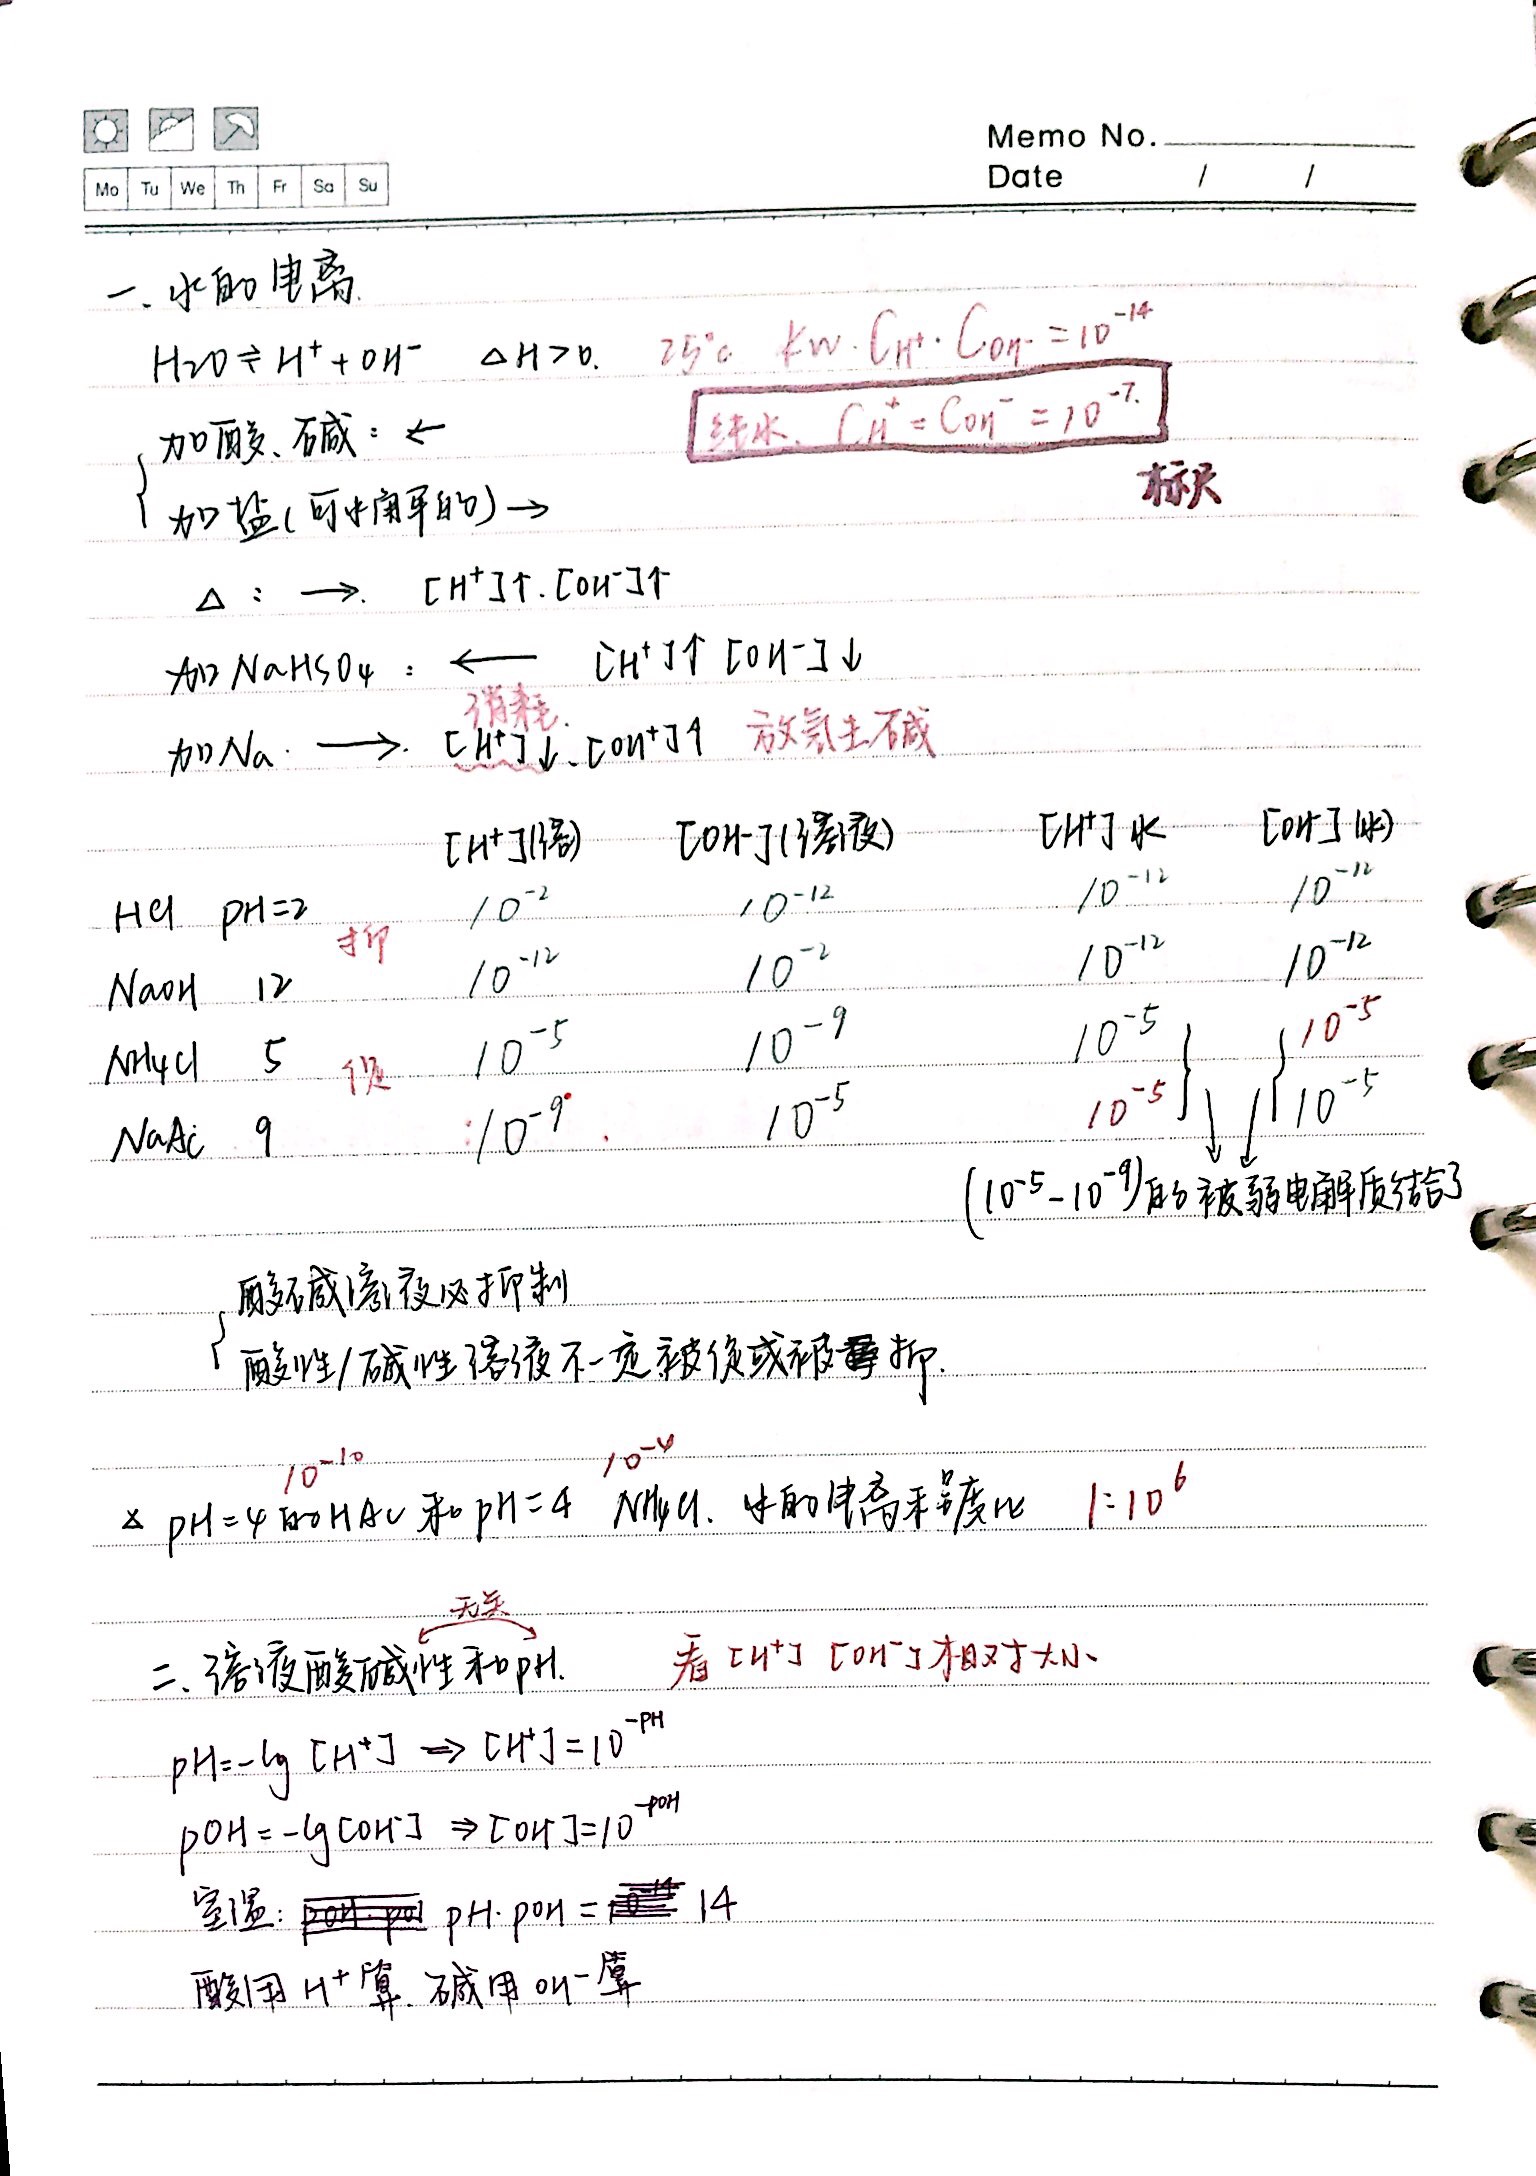 Memo No.
Date / /
Mo Tu We Th Fr Sa Su
一、水的电离
H2O⇌H⁺+OH⁻ △H>0. 25°C Kw·C_H⁺·C_OH⁻=10⁻¹⁴
纯水、C_H⁺=C_OH⁻=10⁻⁷
标尺
加酸、碱:←
加盐(可水解的)→
△:→. [H⁺]↑.[OH⁻]↑
加NaHSO₄:← [H⁺]↑[OH⁻]↓
消耗.
加Na. →. [H⁺]↓.[OH⁺]↑ 放氢生碱
[H⁺](溶) [OH⁻](溶液) [H⁺]水 [OH⁻](水)
HCl pH=2 10⁻² 10⁻¹² 10⁻¹² 10⁻¹²
抑
NaOH 12 10⁻¹² 10⁻² 10⁻¹² 10⁻¹²
NH₄Cl 5 促 10⁻⁵ 10⁻⁹ 10⁻⁵ 10⁻⁵
NaAc 9 10⁻⁹ 10⁻⁵ 10⁻⁵ 10⁻⁵
(10⁻⁵-10⁻⁹)的被弱电解质结合了
酸碱溶液必抑制
酸性/碱性溶液不一定被促或被抑.
10⁻¹⁰ 10⁻⁴
pH=4的HAc和pH=4 NH₄Cl.水的电离程度比 1:10⁶
无关
二、溶液酸碱性和pH. 看[H⁺][OH⁻]相对大小、
pH=-lg[H⁺]⇒[H⁺]=10^-PH
pOH=-lg[OH⁻]⇒[OH⁻]=10^-POH
室温: pH·pOH= 14
酸用H⁺算.碱用OH⁻算